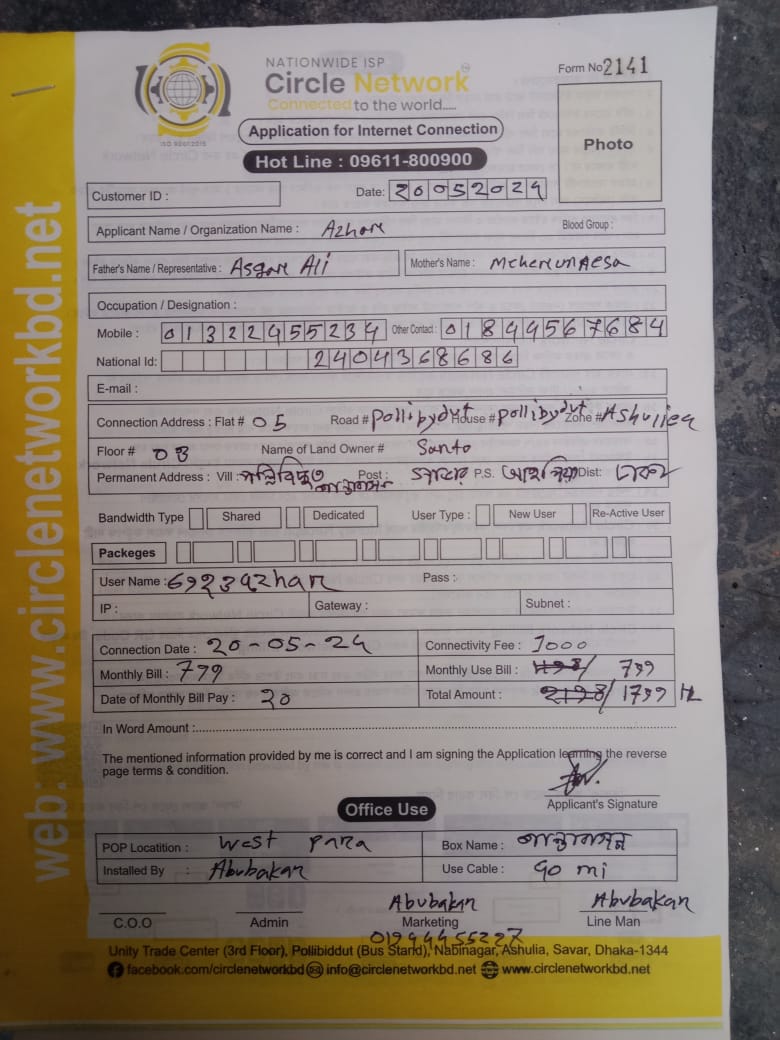 NATIONWIDE ISP
Circle Network
Connected to the world.....
ISO 9001:2015
Form No 2141
Application for Internet Connection
Photo
Hot Line : 09611-800900
Customer ID :
Date: 20052024
Applicant Name / Organization Name : Azhar Blood Group :
Father's Name / Representative : Asgar Ali Mother's Name :
Occupation / Designation :
Mobile : 01322455234 Other Contact : 01844567684
National Id: 2404368686
E-mail :
Connection Address : Flat # 05 Road # House # Zone #
Floor # 03 Name of Land Owner # Santo
Permanent Address : Vill : Post : P.S. Dist: ঢাকা
Bandwidth Type Shared Dedicated User Type : New User Re-Active User
Packeges
User Name : Pass :
IP : Gateway : Subnet :
Connection Date : 20-05-24 Connectivity Fee : 1000
Monthly Bill : 799 Monthly Use Bill : 799
Date of Monthly Bill Pay : 20 Total Amount : 1799
In Word Amount :
The mentioned information provided by me is correct and I am signing the Application learning the reverse
page terms & condition.
Applicant's Signature
Office Use
POP Locatition : West para Box Name :
Installed By : Abubakar Use Cable : 90 mi
Abubakar Abubakar
C.O.O Admin Marketing Line Man
Unity Trade Center (3rd Floor), Pollibiddut (Bus Stand), Nabinagar, Ashulia, Savar, Dhaka-1344
facebook.com/circlenetworkbd info@circlenetworkbd.net www.circlenetworkbd.net
web: www.circlenetworkbd.net